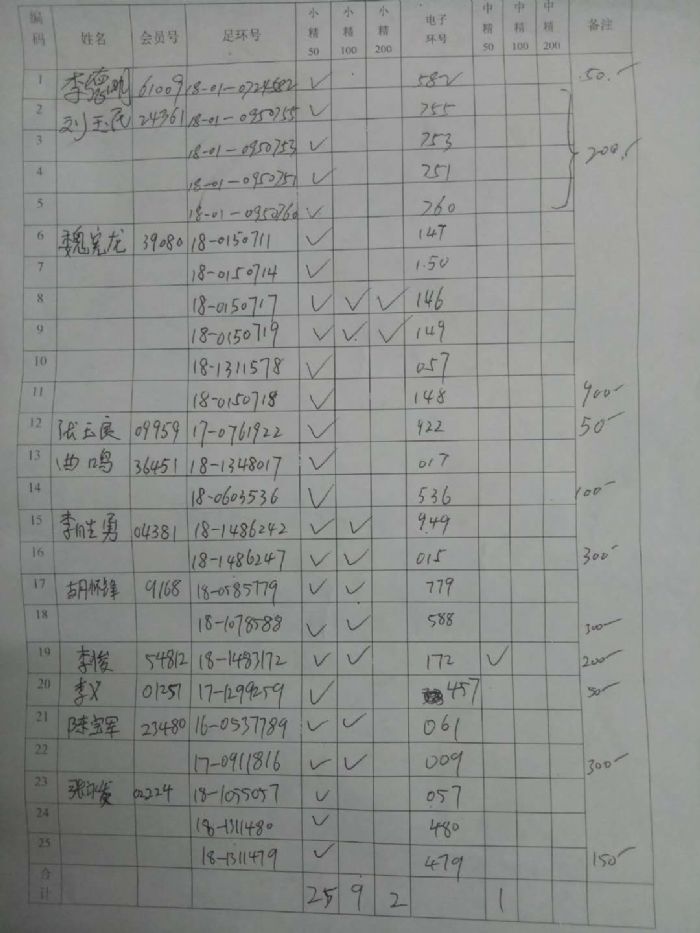 编码 姓名 会员号 足环号 小精50 小精100 小精200 电子环号 中精50 中精100 中精200 备注
1 李德明 61009 18-01-0724582 ✓ 582 50.-
2 刘玉民 24361 18-01-0950755 ✓ 755
3 18-01-0950753 ✓ 753 200.-
4 18-01-0950751 ✓ 751
5 18-01-0950760 ✓ 760
6 魏宪龙 39080 18-0150711 ✓ 147
7 18-0150714 ✓ 150
8 18-0150717 ✓ ✓ ✓ 146
9 18-0150719 ✓ ✓ ✓ 149
10 18-1311578 ✓ 057
11 18-0150718 ✓ 148 900-
12 张玉良 09959 17-0761922 ✓ 922 50-
13 曲鸣 36451 18-1348017 ✓ 017
14 18-0603536 ✓ 536 100-
15 李胜勇 04381 18-1486242 ✓ ✓ 949
16 18-1486247 ✓ ✓ 015 300-
17 胡怀锋 9168 18-0585779 ✓ ✓ 779
18 18-1078588 ✓ ✓ 588 300-
19 李俊 54812 18-1483172 ✓ ✓ 172 ✓ 200-
20 李义 01257 17-1299259 ✓ 457 50-
21 陈宝军 23480 16-0537789 ✓ ✓ 061
22 17-0911816 ✓ ✓ 009 300-
23 张 02224 18-1055057 ✓ 057
24 18-1311480 ✓ 480
25 18-1311479 ✓ 479 150-
合计 25 9 2 1